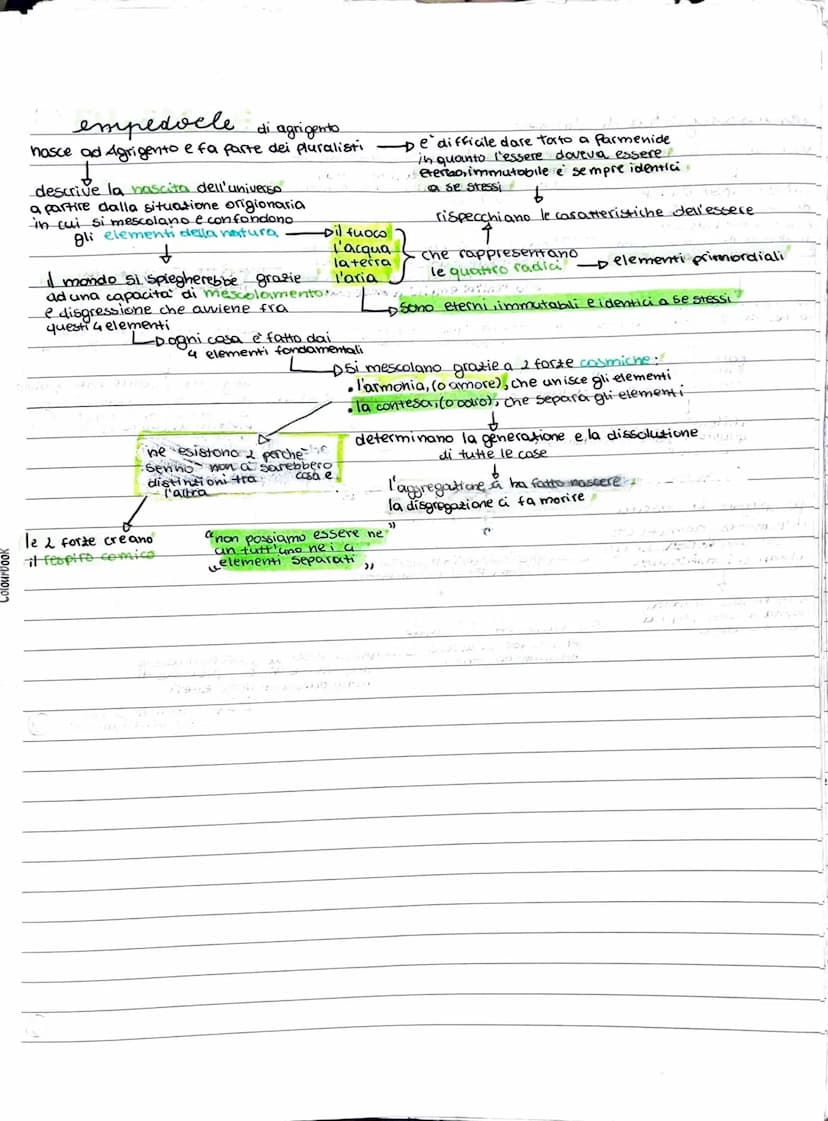 empedocle di agrigento
nasce ad Agrigento e fa parte dei pluralisti
è difficile dare torto a Parmenide
in quanto l'essere doveva essere
eterno, immutabile e sempre identici
a se stessi
rispecchiano le caratteristiche dell'essere
descrive la nascita dell'universo
a partire dalla situazione origionaria
in cui si mescolano e confondono
gli elementi della natura
il fuoco
l'acqua
la terra
l'aria
che rappresentano
le quattro radici
elementi primordiali
sono eterni, immutabili e identici a se stessi
il mondo si spiegherebbe grazie
ad una capacità di mescolamento
e disgressione che avviene fra
questi 4 elementi
ogni cosa è fatto dai
4 elementi fondamentali
si mescolano grazie a 2 forze cosmiche:
• l'armonia, (o amore), che unisce gli elementi
• la contesa, (o odio), che separa gli elementi
determinano la generazione e la dissoluzione
di tutte le cose
l'aggregazione ci ha fatto nascere
la disgregazione ci fa morire
ne esistono 2 perchè
sennò non ci sarebbero
distinzioni tra cosa e
l'altra
le 2 forze creano
il respiro comico
"non possiamo essere ne"
un tutt'uno ne i
"elementi separati"
Colourbook